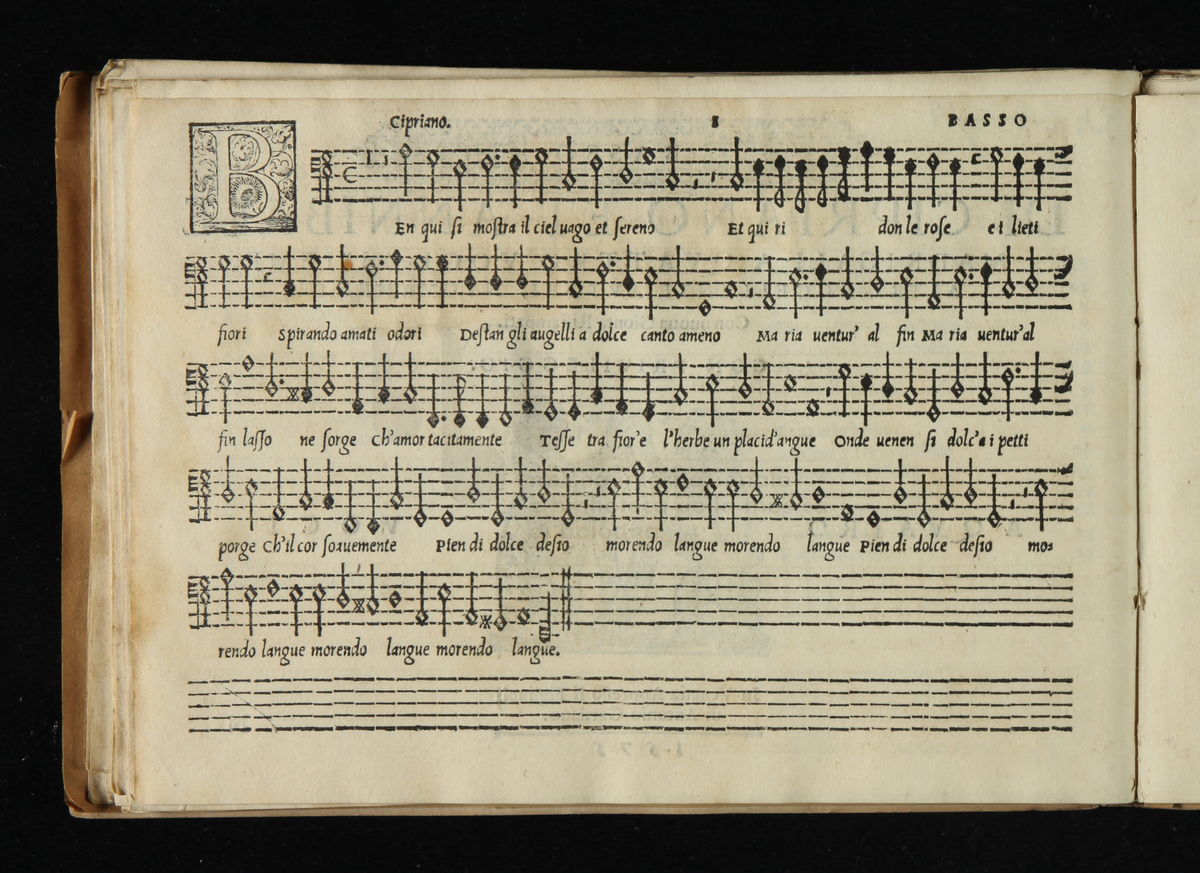 Cipriano. 1 BASSO
BEn qui si mostra il ciel uago et sereno Et qui ri don le rose e i lieti
fiori Spirando amati odori Destan gli augelli a dolce canto ameno Ma ria uentur' al fin Ma ria uentur'al
fin lasso ne sorge Ch'amor tacitamente Tesse tra fior'e l'herbe un placid'angue Onde uenen si dolc'a i petti
porge Ch'il cor soauemente Pien di dolce desio morendo langue morendo langue Pien di dolce desio mo=
rendo langue morendo langue morendo langue.